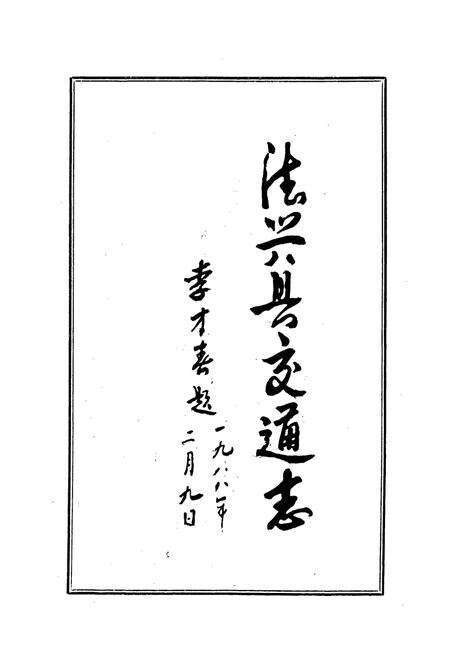 德兴县交通志
李才春题
一九八八年
二月九日